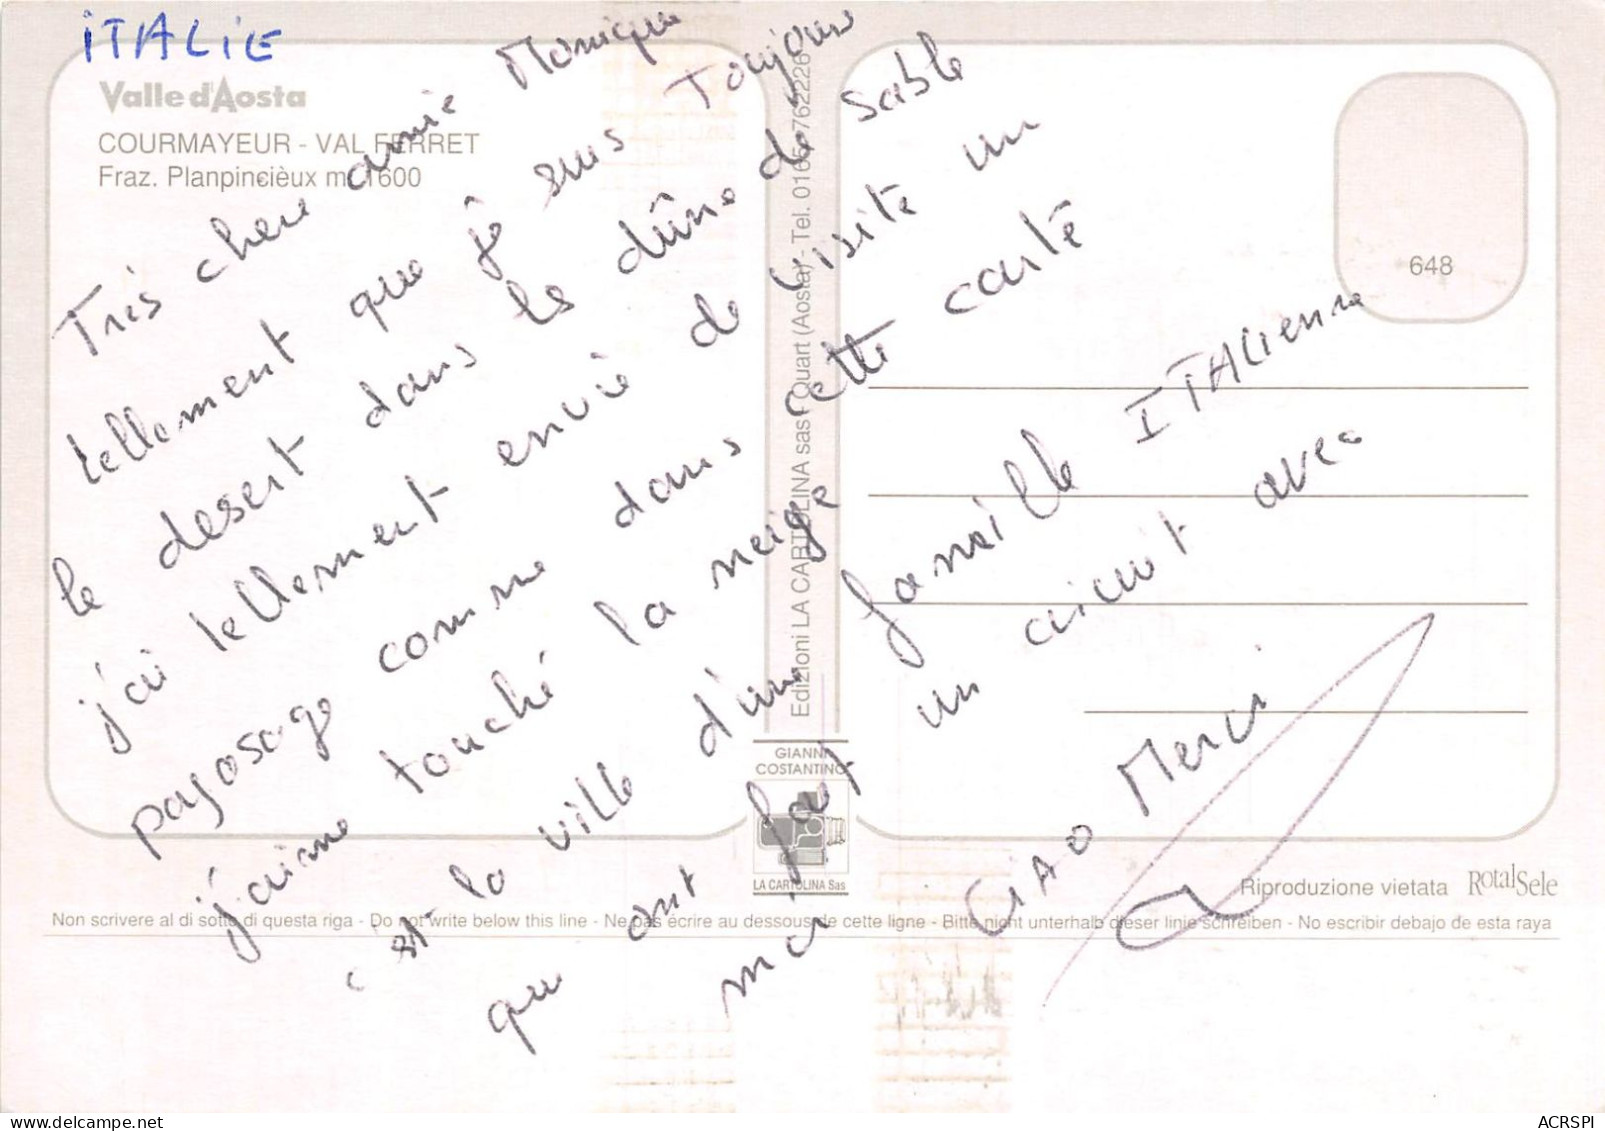 ITALIE
Valle d'Aosta
COURMAYEUR - VAL FERRET
Fraz. Planpincièux m. 1600
Très chere amie Monique
tellement que je suis Toujours
le desert dans le dûne de sable
j'ai tellement envie de visite un
payasage comme dans cette carte
j'aime touché la neige
c'est la ville d'une famille ITALienne
qui ont fait un circuit avec
moi
CIAO Merci
648
Edizioni LA CARTOLINA sas - Quart (Aosta) - Tel. 0165-762226
GIANNI
COSTANTINO
LA CARTOLINA Sas
Riproduzione vietata
RotalSele
Non scrivere al di sotto di questa riga - Do not write below this line - Ne pas écrire au dessous de cette ligne - Bitte nicht unterhalb dieser linie schreiben - No escribir debajo de esta raya
ACRSPI